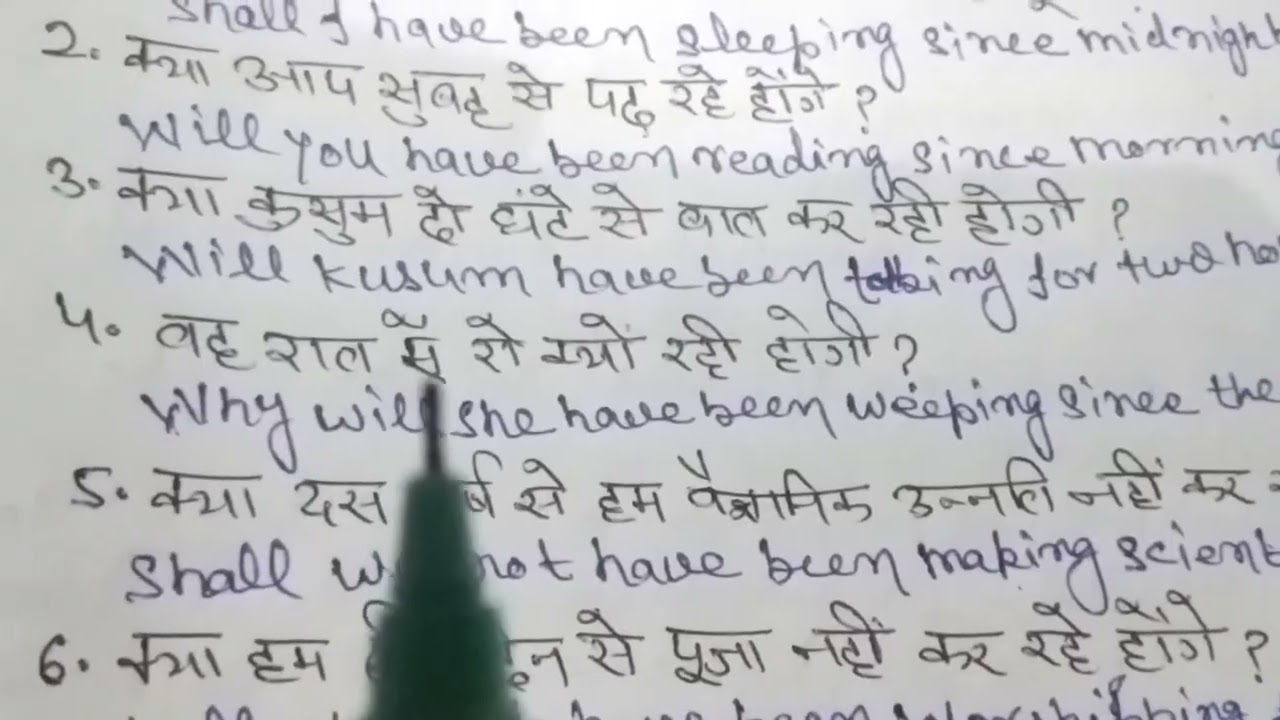 Shall I have been sleeping since midnight
2. क्या आप सुबह से पढ़ रहे होंगे ?
Will you have been reading since morning
3. क्या कुसुम दो घंटे से बात कर रही होगी ?
Will Kusum have been talking for two ho
4. वह रात से रो क्यों रही होगी ?
Why will she have been weeping since the
5. क्या दस वर्ष से हम वैज्ञानिक उन्नति नहीं कर
Shall we not have been making scient
6. क्या हम से पूजा नहीं कर रहे होंगे ?
have been worshipping